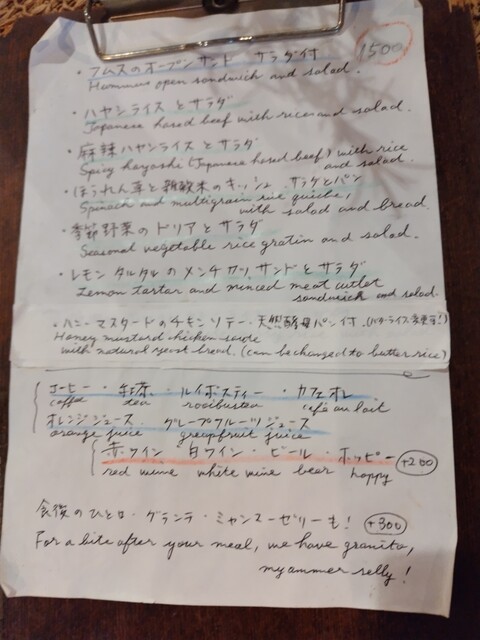 ・フムスのオープンサンド サラダ付 1500
Hummus open sandwich and salad.
・ハヤシライスとサラダ
Japanese hased beef with rice and salad.
・麻辣ハヤシライスとサラダ
Spicy hayashi (Japanese hased beef) with rice
and salad.
・ほうれん草と雑穀米のキッシュ、サラダとパン
Spinach and multigrain rice quiche,
with salad and bread
・季節野菜のドリアとサラダ
Seasonal vegetable rice gratin and salad.
・レモンタルタルのメンチカツサンドとサラダ
Lemon tartar and minced meat cutlet
sandwich and salad.
・ハニーマスタードのチキンソテー・天然酵母パン付.(バターライス変更可!)
Honey mustard chicken saute
with natural yeast bread. (can be changed to butter rice)
コーヒー・紅茶・ルイボスティー・カフェオレ
coffee tea rooibustea cafe au lait
オレンジジュース・グレープフルーツジュース
orange juice greapfruit juice
赤ワイン・白ワイン・ビール・ホッピー +200
red wine white wine beer hoppy
食後のひと口・グラニテ・ミャンマーゼリーも! +300
For a bite after your meal, we have granita,
myammer jelly!